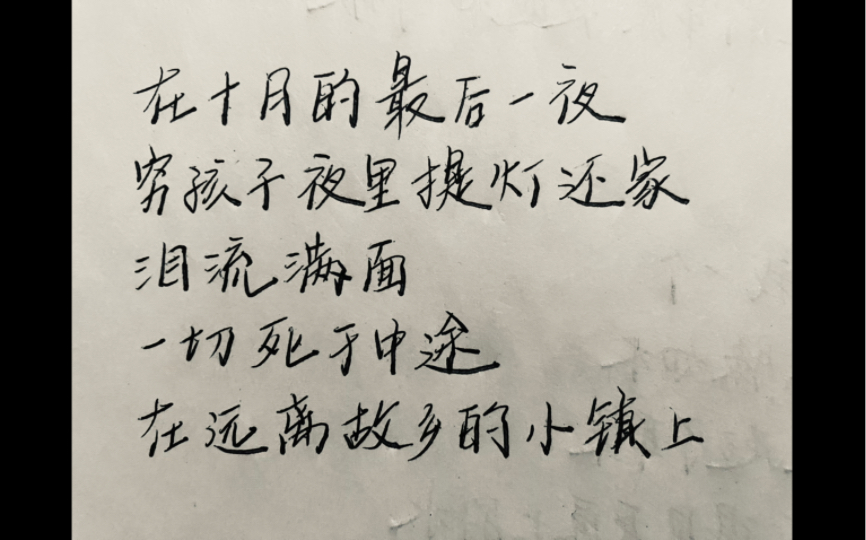 在十月的最后一夜
穷孩子夜里提灯还家
泪流满面
一切死于中途
在远离故乡的小镇上